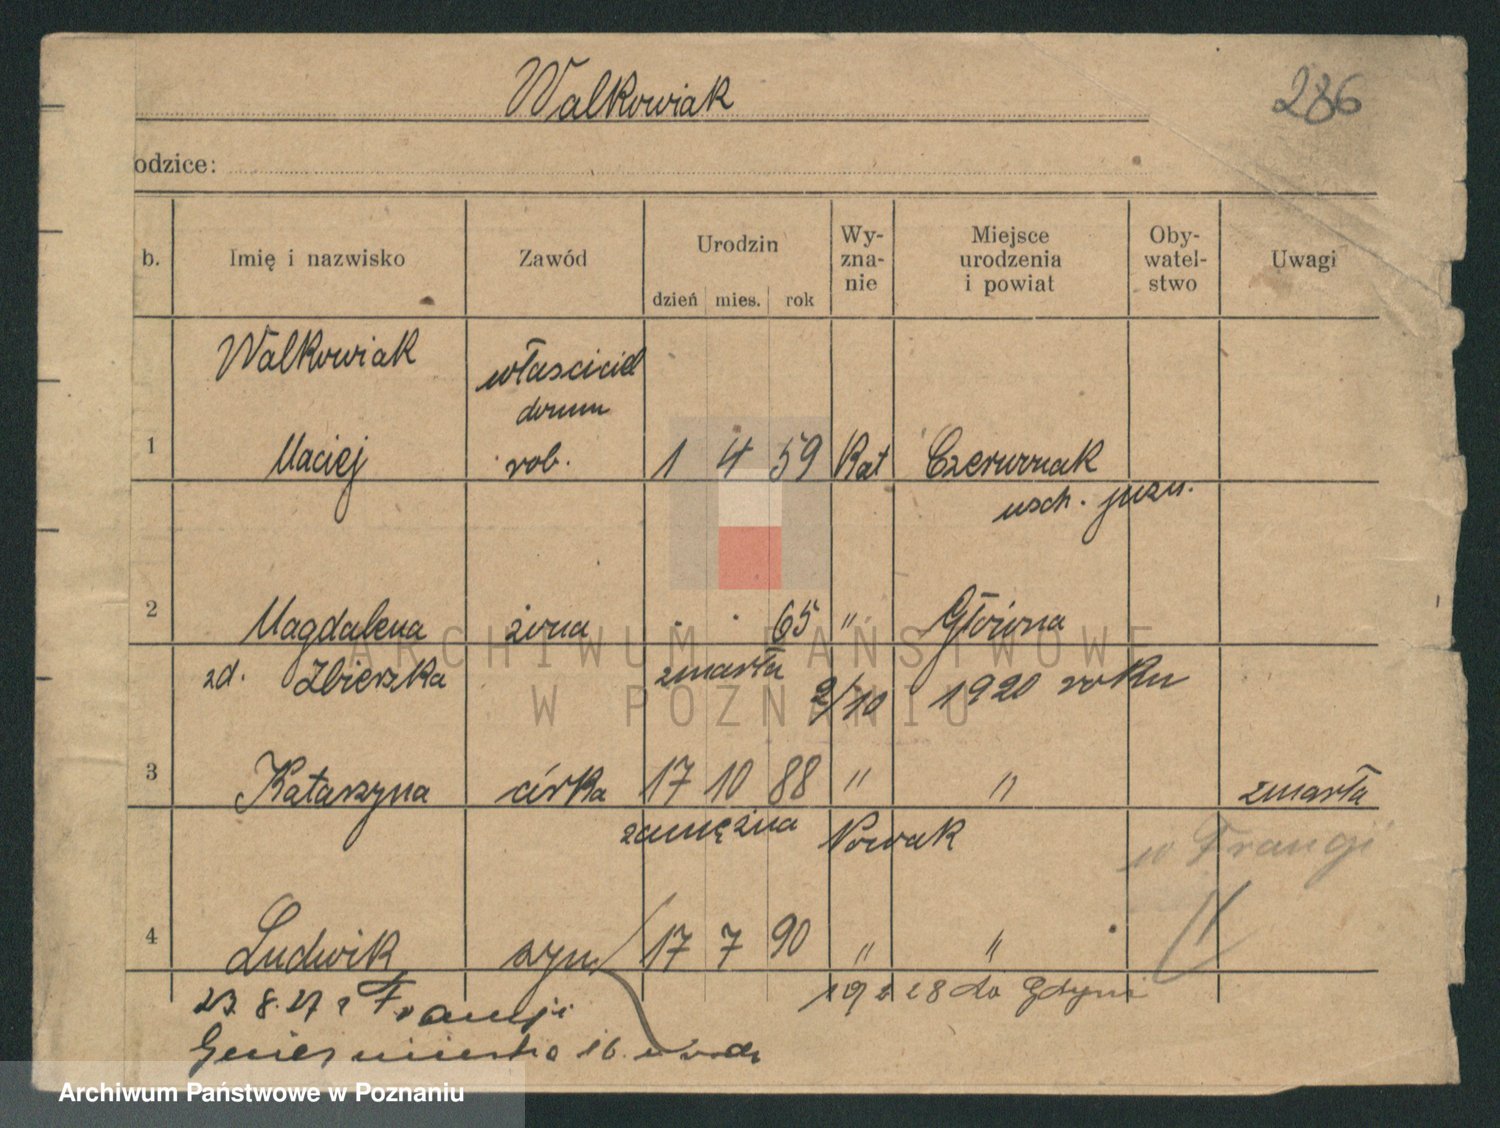 Walkowiak
286
odzice:
b. Imię i nazwisko Zawód Urodzin dzień mies. rok Wy-zna-nie Miejsce urodzenia i powiat Oby-watel-stwo Uwagi
Walkowiak właściciel
domu
1 Maciej rob. 1 4 59 Kat Czerwonak
wsch. pozn.
2 Magdalena żona - - 65 " Główna
zd. Zbierska zmarła 2/10 1920 roku
3 Katarzyna córka 17 10 88 " " zmarła
zamężna Nowak w Francji
4 Ludwik syn 17 7 90 " "
23.8.27 z Francji 19 2 28 do Gdyni
16.
ARCHIWUM PAŃSTWOWE
W POZNANIU
Archiwum Państwowe w Poznaniu